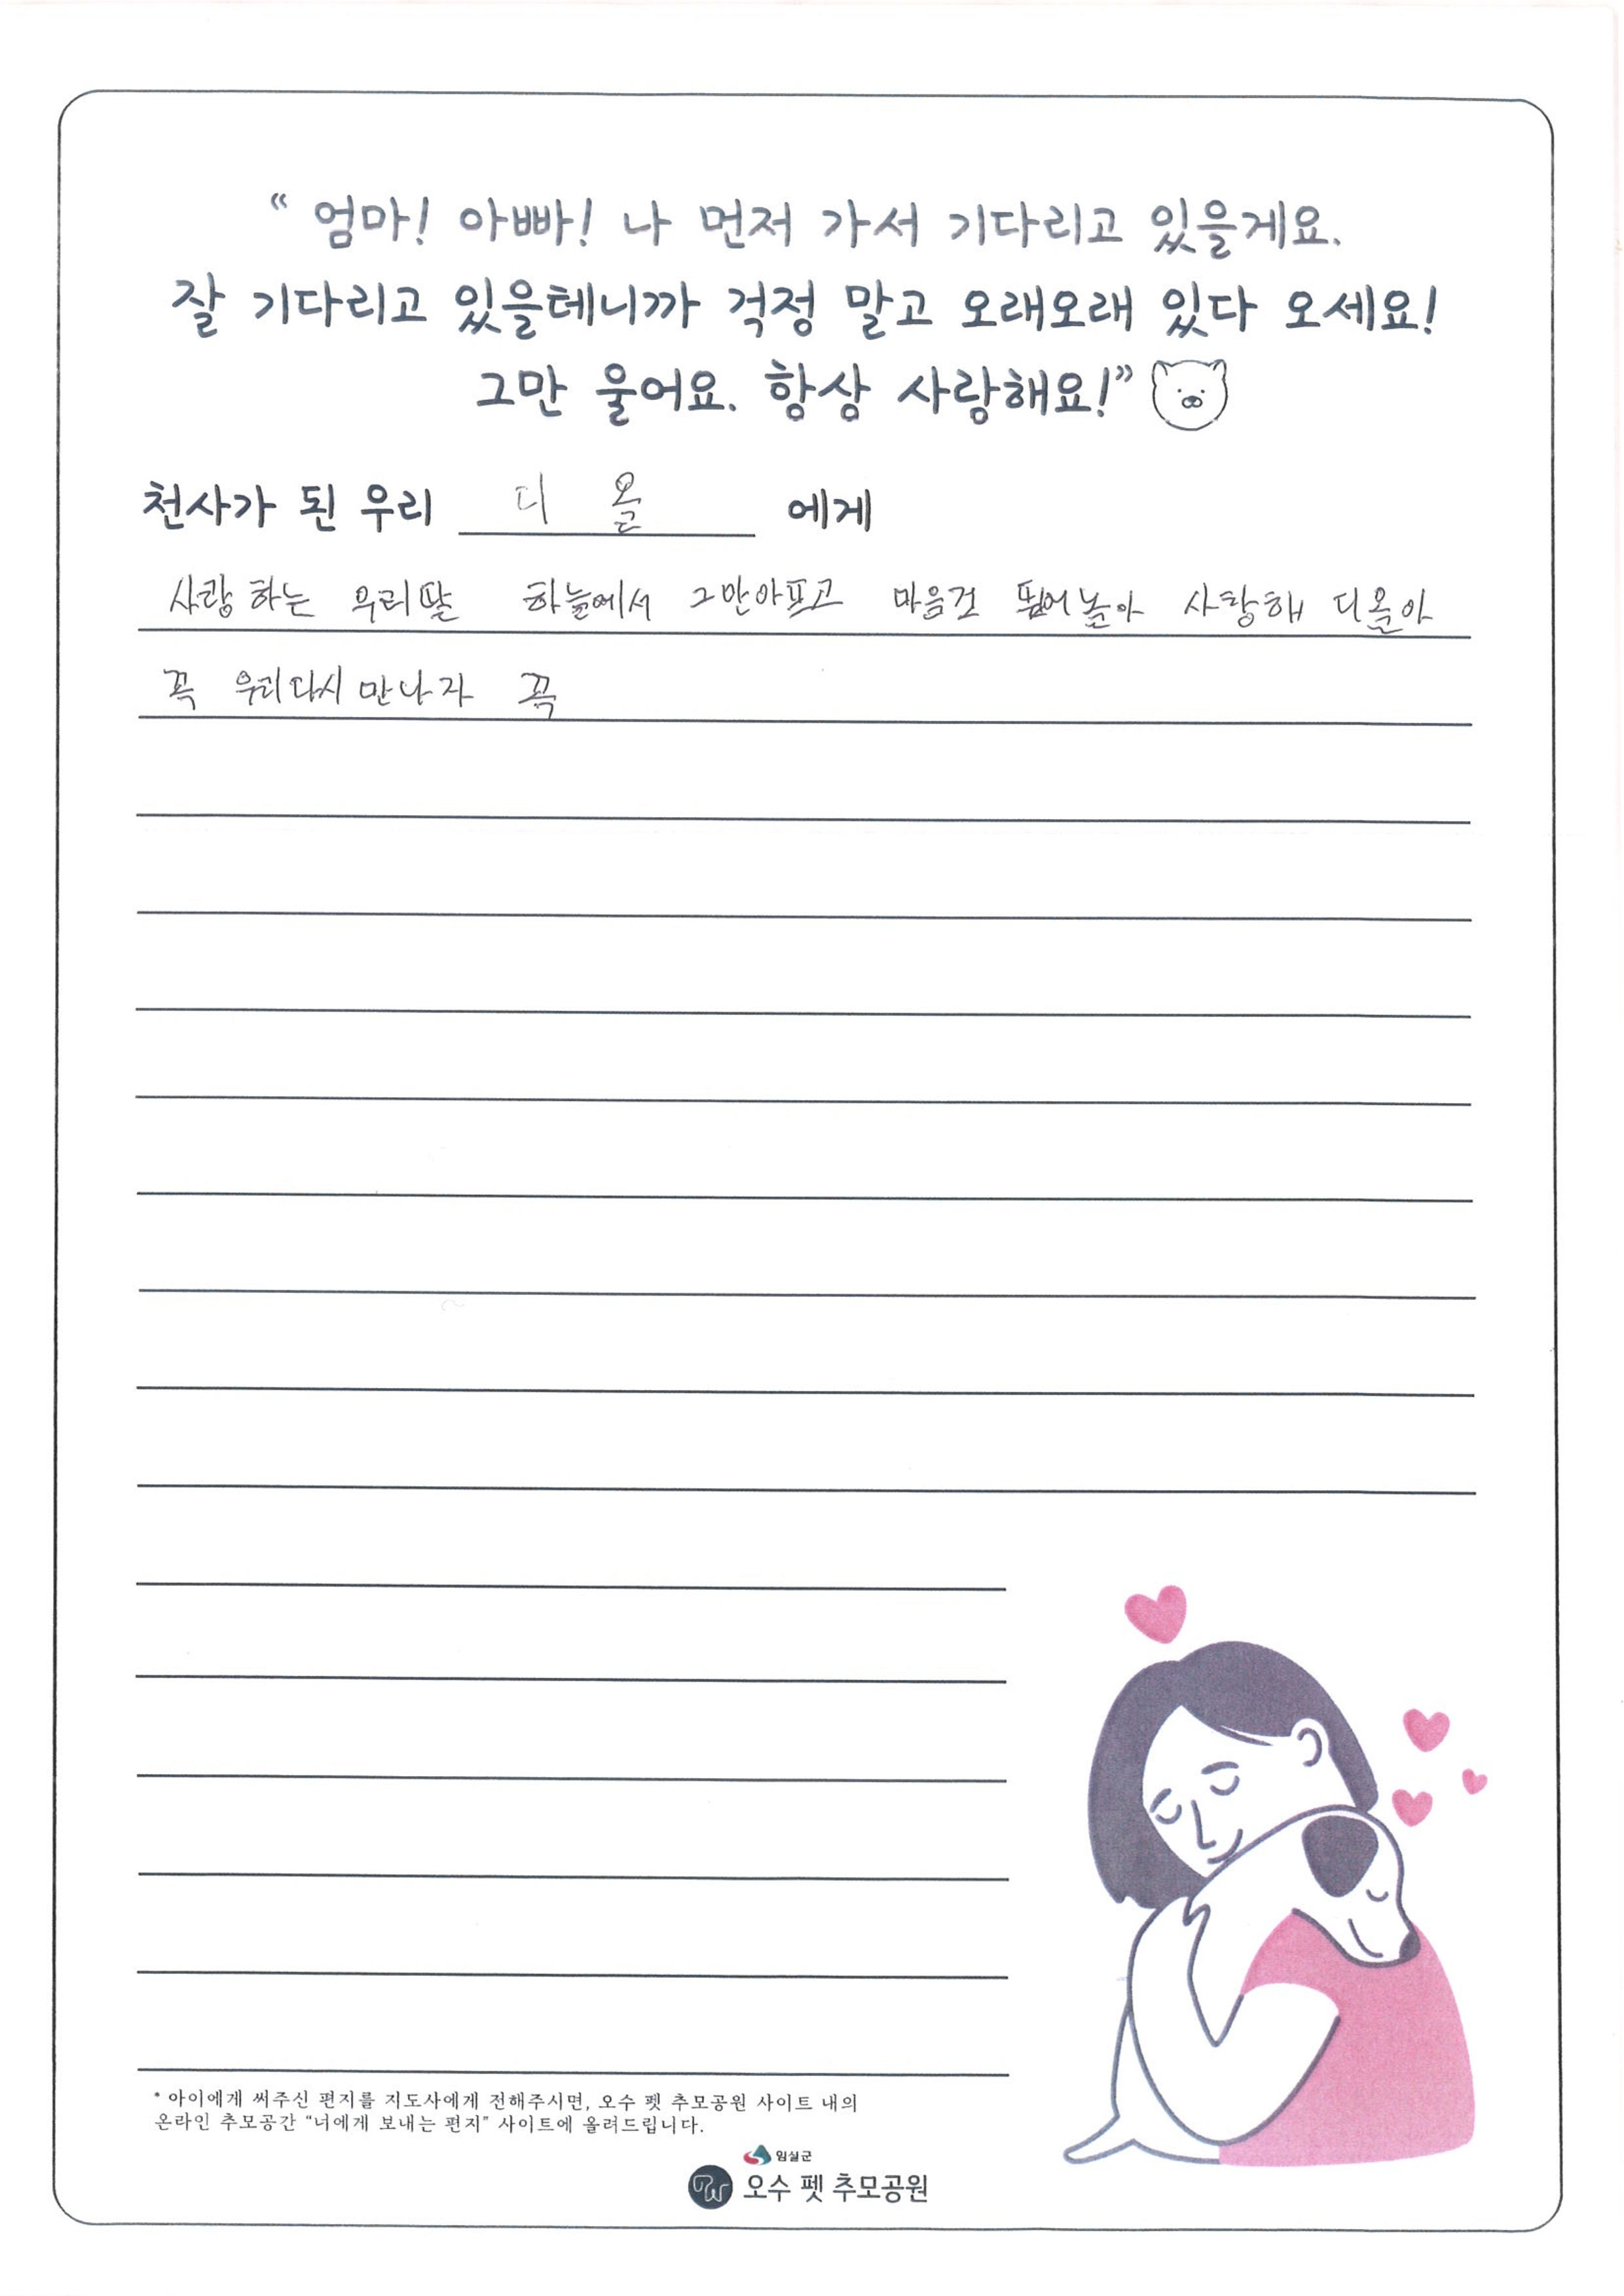 “ 엄마! 아빠! 나 먼저 가서 기다리고 있을게요.
잘 기다리고 있을테니까 걱정 말고 오래오래 있다 오세요!
그만 울어요. 항상 사랑해요!”
천사가 된 우리 디 올 에게
사랑하는 우리딸 하늘에서 그만아프고 마음껏 뛰어놀아 사랑해 디올아
꼭 우리다시 만나자 꼭
* 아이에게 써주신 편지를 지도사에게 전해주시면, 오수 펫 추모공원 사이트 내의
온라인 추모공간 “너에게 보내는 편지” 사이트에 올려드립니다.
임실군
PW 오수 펫 추모공원